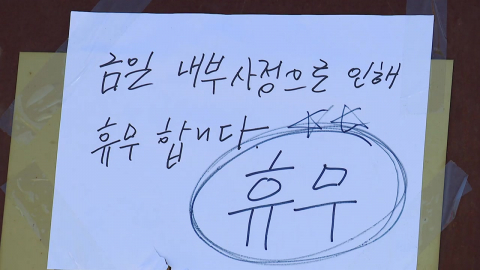 금일 내부사정으로 인해
휴무 합니다. ☆☆
휴무